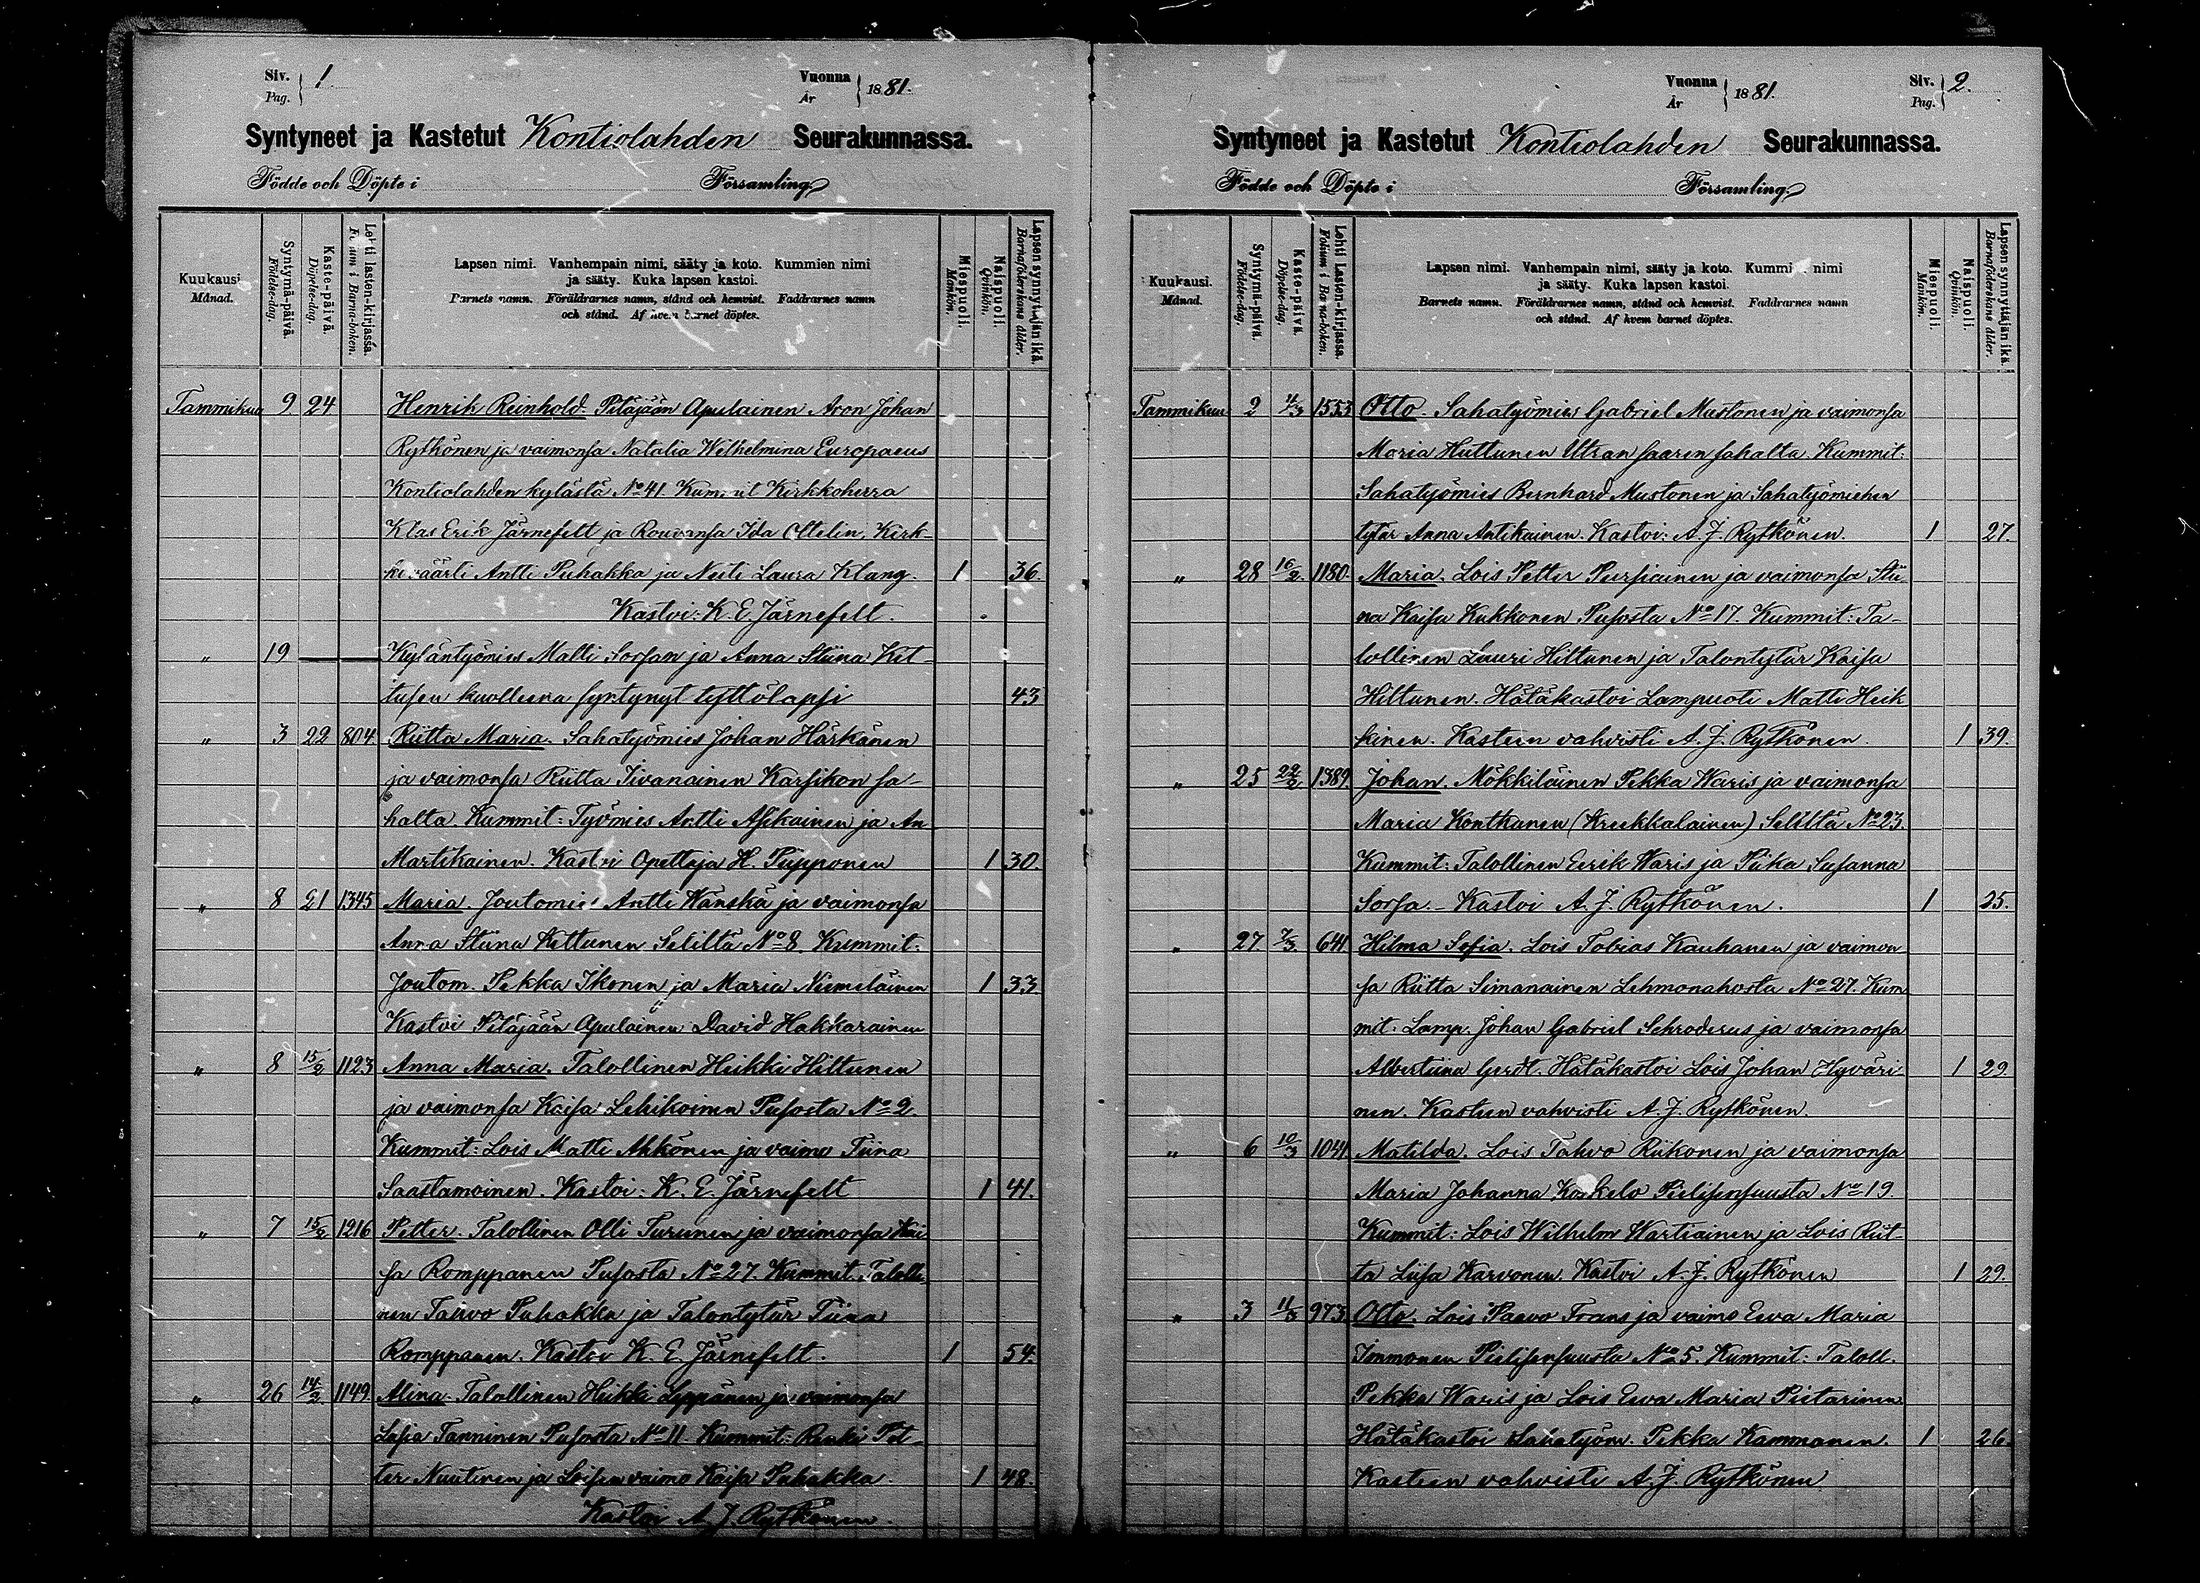 Siv. Pag. 1
Vuonna År 1881.
Syntyneet ja Kastetut Kontiolahden Seurakunnassa.
Födde och Döpte i Församling.
Kuukausi. Månad.
Syntymä-päivä. Födelse-dag.
Kaste-päivä. Döpelse-dag.
Lehti lasten-kirjassa. Folium i Barna-boken.
Lapsen nimi. Vanhempain nimi, sääty ja koto. Kummien nimi
ja sääty. Kuka lapsen kastoi.
Barnets namn. Föräldrarnes namn, stånd och hemvist. Faddrarnes namn
och stånd. Af hvem barnet döptes.
Miespuoli. Mankön.
Naispuoli. Qvinkön.
Lapsen synnyttäjän ikä. Barnaföderskans ålder.
Tammikuu 9 24 Henrik Reinhold. Pitäjään Apulainen Aron Johan
Rytkönen ja vaimonsa Natalia Wilhelmina Europaeus
Kontiolahden kylästä No 41 Kummit Kirkkoherra
Klas Erik Järnefelt ja Rouvansa Ida Oltelin, Kirk-
kiväärti Antti Puhakka ja Neiti Laura Klang. 1 36.
Kastoi: K. E. Järnefelt.
" 19 — — Kyläntyömies Matti Sorsan ja Anna Stiina Kit-
tusen kuolleena syntynyt tyttölapsi 43
" 3 22 804 Riitta Maria. Sahatyömies Johan Härkänen
ja vaimonsa Riitta Iivanainen Karsikon sa-
halta. Kummit: Työmies Antti Asikainen ja An.
Martikainen. Kastoi Opettaja H. Piipponen 1 30.
" 8 21 1345 Maria. Joutomies Antti Wänskä ja vaimonsa
Anna Stiina Kettunen Seliltä No 8. Kummit:
Joutom. Pekka Ikonen ja Maria Niemeläinen 1 33
Kastoi Pitäjään Apulainen David Hakkarainen
" 8 15/2 1123 Anna Maria. Talollinen Heikki Hiltunen
ja vaimonsa Kaisa Lehikoinen Pusosta No 2
Kummit: Lois Matti Ahkönen ja vaimo Tiina
Saastamoinen. Kastoi: K. E. Järnefelt 1 41.
" 7 15/2 1216 Petter. Talollinen Olli Turunen ja vaimonsa Kai-
sa Romppanen Pusosta No 27. Kummit. Talolli-
nen Tahvo Puhakka ja Talontytär Tiina
Romppanen. Kastoi K. E. Järnefelt. 1 54.
" 26 14/2 1149 Alina. Talollinen Heikki Leppänen ja vaimonsa
Tanninen Pusosta No 11 Kummit: Renki Pet-
ter Nuutinen ja Loisen vaimo Kaisa Puhakka. 1 48.
Kastoi A. J. Rytkönen.
Vuonna År 1881.
Siv. Pag. 2.
Syntyneet ja Kastetut Kontiolahden Seurakunnassa.
Födde och Döpte i Församling.
Kuukausi. Månad.
Syntymä-päivä. Födelse-dag.
Kaste-päivä. Döpelse-dag.
Lehti Lasten-kirjassa. Folium i Barna-boken.
Lapsen nimi. Vanhempain nimi, sääty ja koto. Kummi nimi
ja sääty. Kuka lapsen kastoi.
Barnets namn. Föräldrarnes namn, stånd och hemvist. Faddrarnes namn
och stånd. Af hvem barnet döptes.
Miespuoli. Mankön.
Naispuoli. Qvinkön.
Lapsen synnyttäjän ikä. Barnaföderskans ålder.
Tammikuu 2 4/3 1553 Otto. Sahatyömies Gabriel Mustonen ja vaimonsa
Maria Huttunen Utran saaren sahalta. Kummit:
Sahatyömies Bernhard Mustonen ja Sahatyömiehen
tytär Anna Antikainen. Kastoi: A. J. Rytkönen. 1 27.
" 28 16/2 1180. Maria. Lois Petter Pursiainen ja vaimonsa Stii-
na Kaisa Kukkonen Pusosta No 17. Kummit: Ta-
lollinen Lauri Hiltunen ja Talontytär Kaisa
Hiltunen. Hätäkastoi Lampuoti Matti Heik
kinen. Kasteen vahvisti A. J. Rytkönen. 1 39.
" 25 22/2 1389. Johan. Mökkiläinen Pekka Waris ja vaimonsa
Maria Kontkanen (Kreikkalainen) Seliltä No 23.
Kummit: Talollinen Eerik Waris ja Piika Susanna
Sorsa. – Kastoi A. J. Rytkönen. 1 25.
" 27 7/3. 641. Hilma Sofia. Lois Tobias Kauhanen ja vaimon
sa Riitta Simanainen Lehmonahosta No 27. Kum
mit: Lamp. Johan Gabriel Schroderus ja vaimonsa
Albertiina Gerdt. Hätäkastoi Lois Johan Hyväri 1 29.
nen. Kasteen vahvisti A. J. Rytkönen.
" 6 10/3 1041. Matilda. Lois Tahvo Riikonen ja vaimonsa
Maria Johanna Koskelo Pielisensuusta No 19.
Kummit: Lois Wilhelm Wartiainen ja Lois Riit-
ta Liisa Karvonen. Kastoi A. J. Rytkönen 1 29.
" 3 11/3 973. Otto. Lois Paavo Frans ja vaimo Ewa Maria
Immonen Pielisensuusta No 5. Kummit: Taloll.
Pekka Waris ja Lois Ewa Maria Pietarinen
Hätäkastoi Sahatyöm. Pekka Kammonen. 1 26.
Kasteen vahvisti A. J. Rytkönen